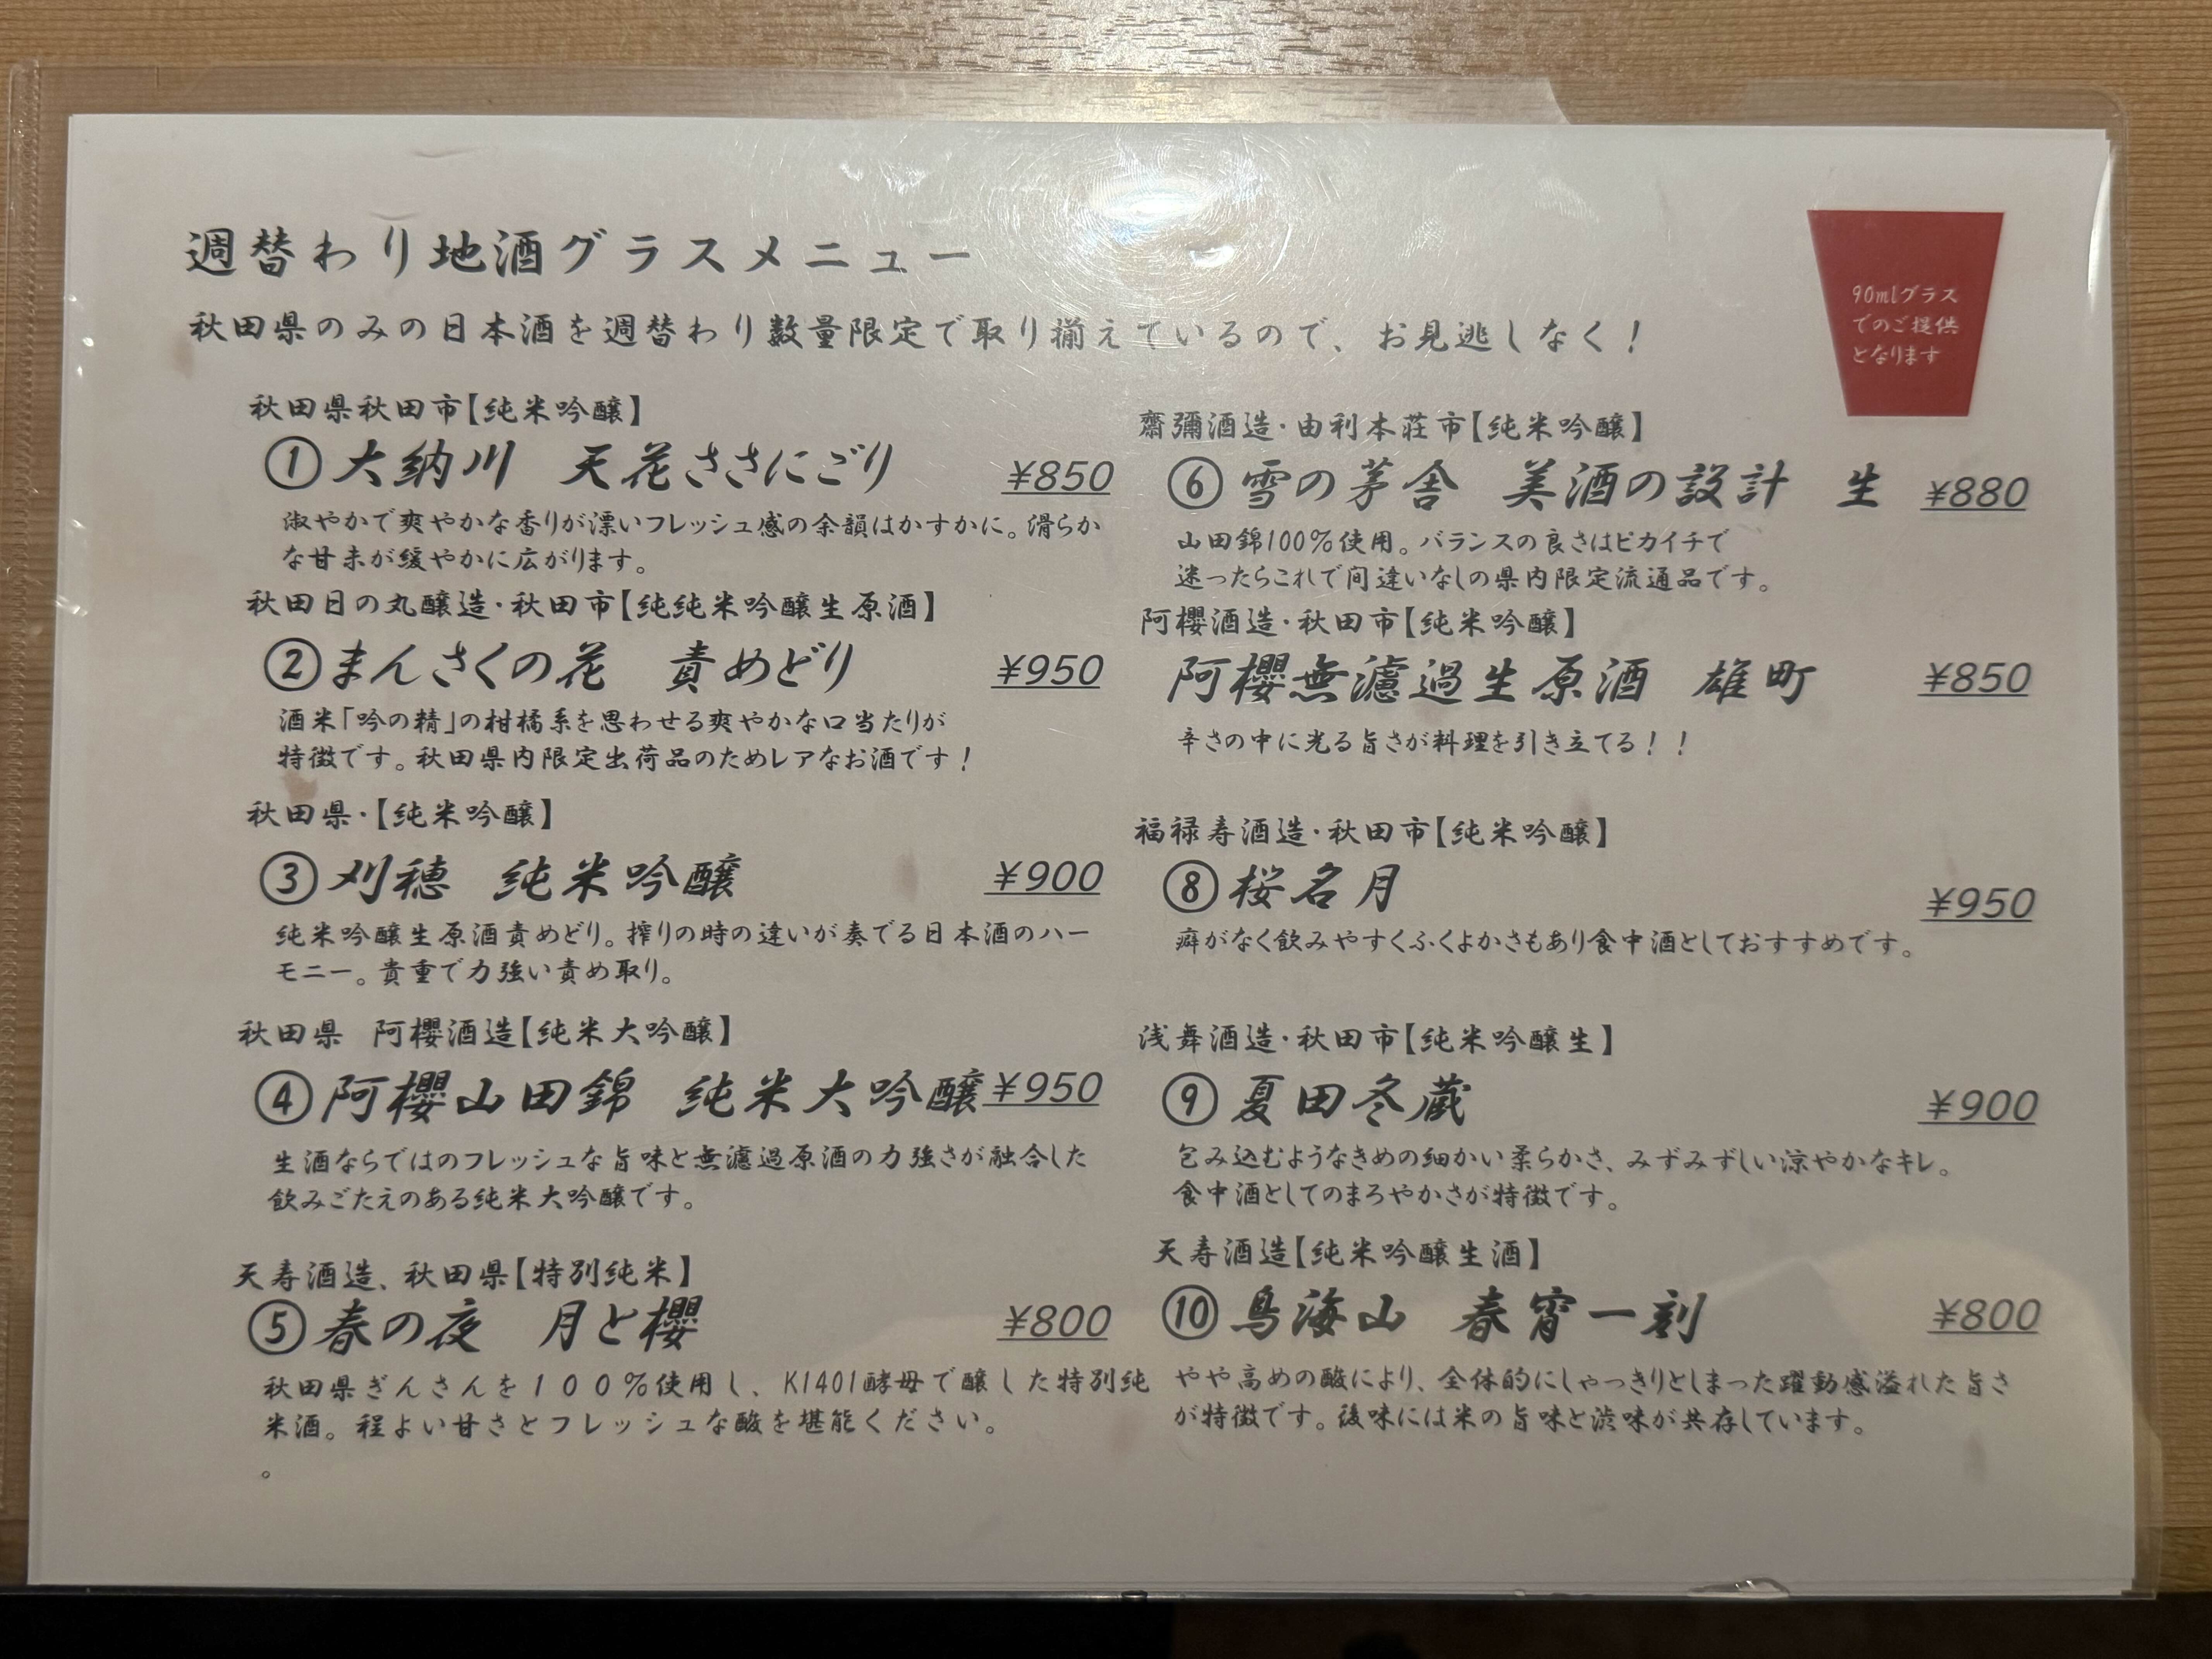 週替わり地酒グラスメニュー
秋田県のみの日本酒を週替わり数量限定で取り揃えているので、お見逃しなく！
90mlグラス
でのご提供
となります
秋田県秋田市【純米吟醸】
①大納川　天花ささにごり ¥850
淑やかで爽やかな香りが漂いフレッシュ感の余韻はかすかに。滑らか
な甘未が緩やかに広がります。
秋田日の丸醸造・秋田市【純純米吟醸生原酒】
②まんさくの花　責めどり ¥950
酒米「吟の精」の柑橘系を思わせる爽やかな口当たりが
特徴です。秋田県内限定出荷品のためレアなお酒です！
秋田県・【純米吟醸】
③刈穂　純米吟醸 ¥900
純米吟醸生原酒責めどり。搾りの時の違いが奏でる日本酒のハー
モニー。貴重で力強い責め取り。
秋田県　阿櫻酒造【純米大吟醸】
④阿櫻山田錦　純米大吟醸 ¥950
生酒ならではのフレッシュな旨味と無濾過原酒の力強さが融合した
飲みごたえのある純米大吟醸です。
天寿酒造、秋田県【特別純米】
⑤春の夜　月と櫻 ¥800
秋田県ぎんさんを１００％使用し、K1401酵母で醸した特別純
米酒。程よい甘さとフレッシュな酸を堪能ください。
。
齋彌酒造・由利本荘市【純米吟醸】
⑥雪の茅舎　美酒の設計　生 ¥880
山田錦100％使用。バランスの良さはピカイチで
迷ったらこれで間違いなしの県内限定流通品です。
阿櫻酒造・秋田市【純米吟醸】
阿櫻無濾過生原酒　雄町 ¥850
辛さの中に光る旨さが料理を引き立てる！！
福禄寿酒造・秋田市【純米吟醸】
⑧桜名月 ¥950
癖がなく飲みやすくふくよかさもあり食中酒としておすすめです。
浅舞酒造・秋田市【純米吟醸生】
⑨夏田冬蔵 ¥900
包み込むようなきめの細かい柔らかさ、みずみずしい涼やかなキレ。
食中酒としてのまろやかさが特徴です。
天寿酒造【純米吟醸生酒】
⑩鳥海山　春宵一刻 ¥800
やや高めの酸により、全体的にしゃっきりとしまった躍動感溢れた旨さ
が特徴です。後味には米の旨味と渋味が共存しています。